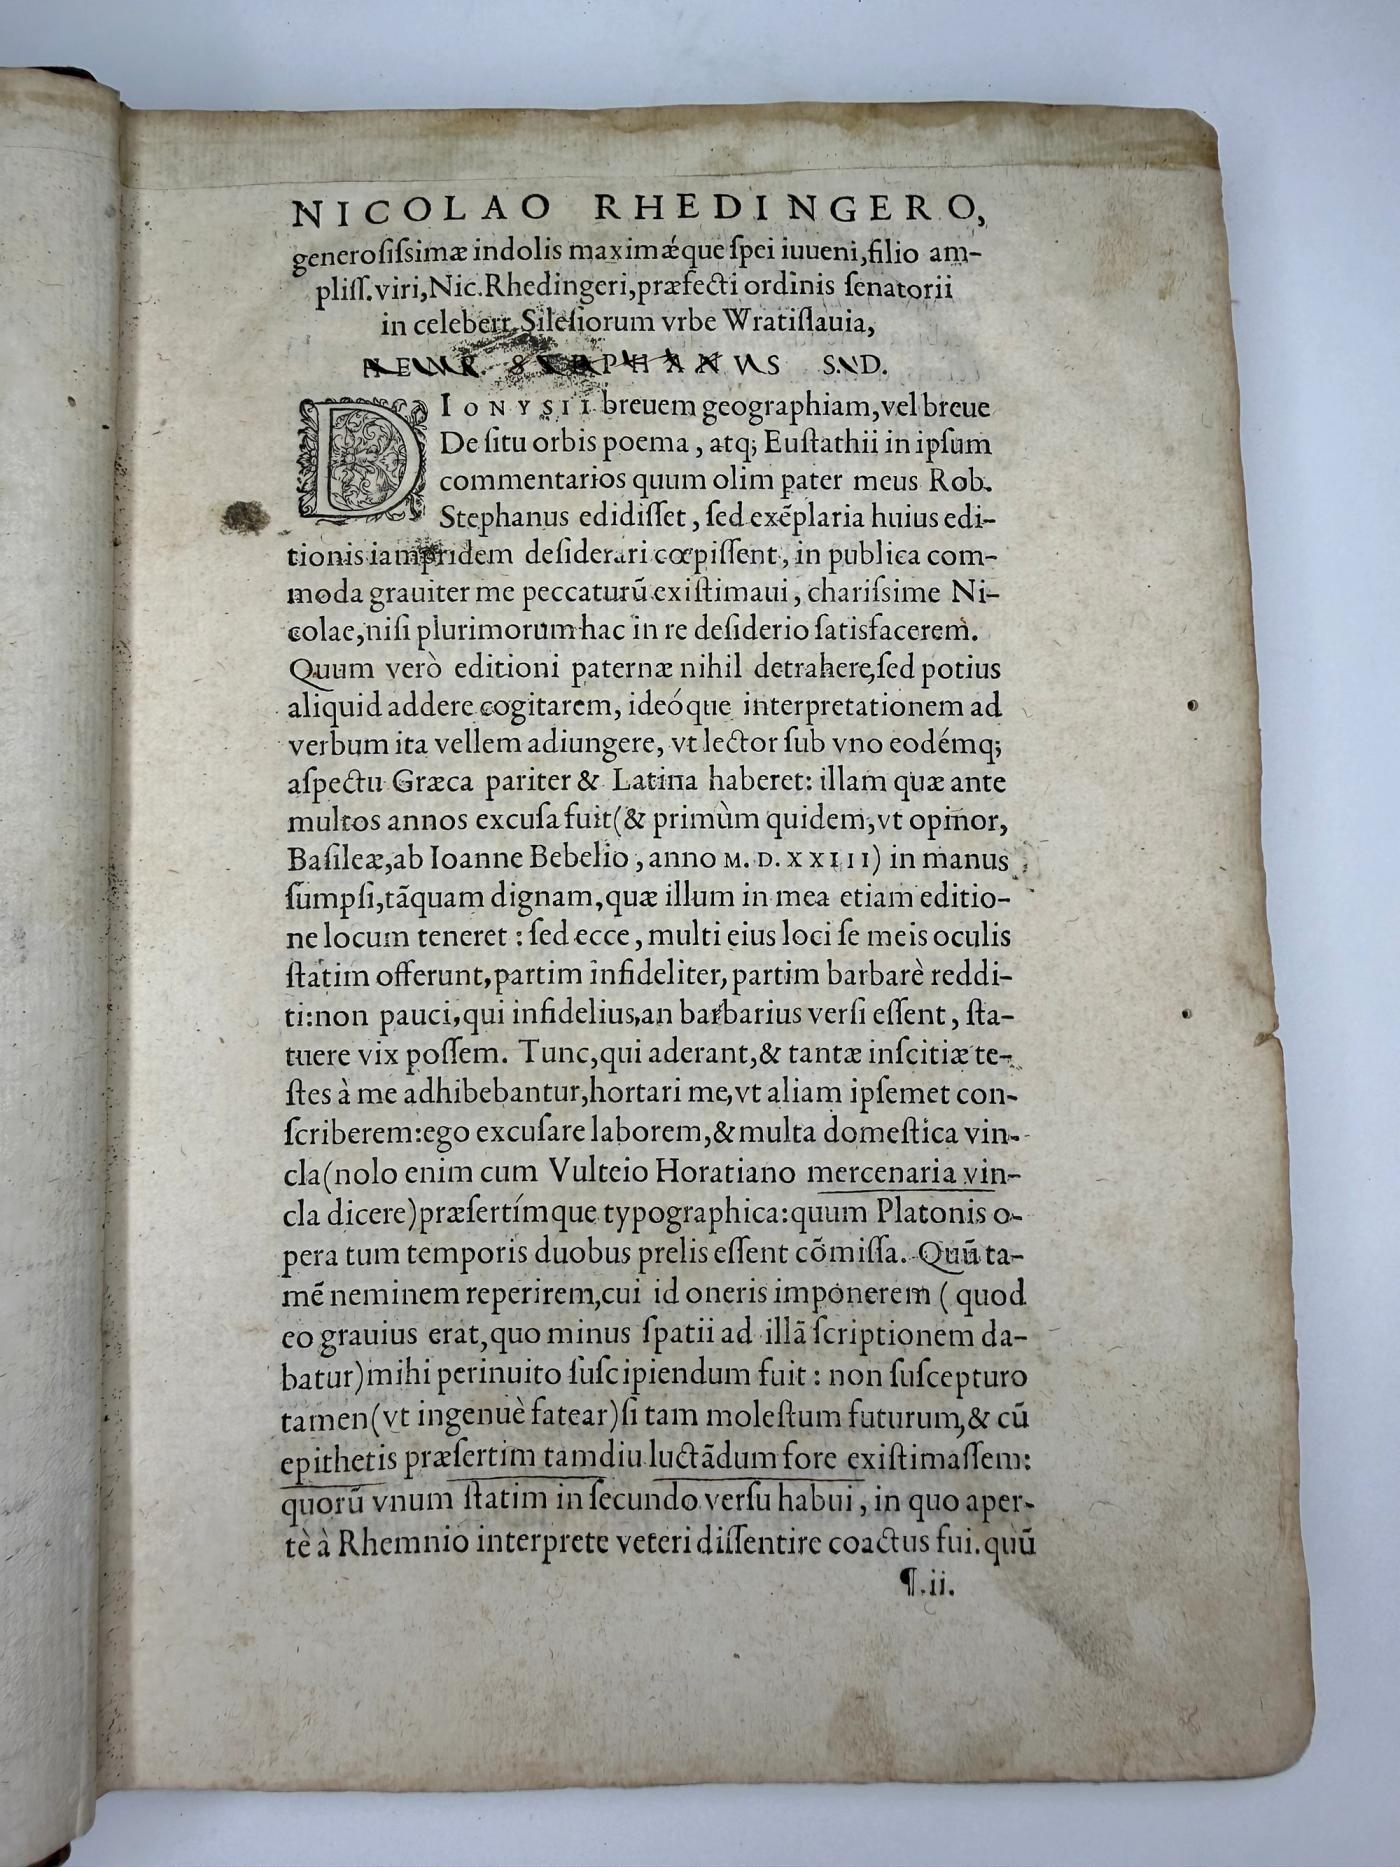 NICOLAO RHEDINGERO,
generosiſsimæ indolis maximǽque ſpei iuueni, filio am-
pliſſ. viri, Nic. Rhedingeri, præfecti ordinis ſenatorii
in celeberr. Sileſiorum vrbe Wratiſlauia,
HENR. STEPHANVS S. D.
DIONYSII breuem geographiam, vel breue
De ſitu orbis poema, atq; Euſtathii in ipſum
commentarios quum olim pater meus Rob.
Stephanus edidiſſet, ſed exẽplaria huius edi-
tionis iampridem deſiderari cœpiſſent, in publica com-
moda grauiter me peccaturũ exiſtimaui, chariſsime Ni-
colae, niſi plurimorum hac in re deſiderio ſatisfacerem.
Quum verò editioni paternæ nihil detrahere, ſed potius
aliquid addere cogitarem, ideóque interpretationem ad
verbum ita vellem adiungere, vt lector ſub vno eodémq;
aſpectu Græca pariter & Latina haberet: illam quæ ante
multos annos excuſa fuit (& primùm quidem, vt opinor,
Baſileæ, ab Ioanne Bebelio, anno M. D. XXIII) in manus
ſumpſi, tãquam dignam, quæ illum in mea etiam editio-
ne locum teneret: ſed ecce, multi eius loci ſe meis oculis
ſtatim offerunt, partim infideliter, partim barbarè reddi-
ti: non pauci, qui infidelius, an barbarius verſi eſſent, ſta-
tuere vix poſſem. Tunc, qui aderant, & tantæ inſcitiæ te-
ſtes à me adhibebantur, hortari me, vt aliam ipſemet con-
ſcriberem: ego excuſare laborem, & multa domeſtica vin-
cla (nolo enim cum Vulteio Horatiano mercenaria vin-
cla dicere) præſertímque typographica: quum Platonis o-
pera tum temporis duobus prelis eſſent cõmiſſa. Quũ ta-
mẽ neminem reperirem, cui id oneris imponerem (quod
eo grauius erat, quo minus ſpatii ad illã ſcriptionem da-
batur) mihi perinuito ſuſcipiendum fuit: non ſuſcepturo
tamen (vt ingenuè fatear) ſi tam moleſtum futurum, & cũ
epithetis præſertim tamdiu luctãdum fore exiſtimaſſem:
quorũ vnum ſtatim in ſecundo verſu habui, in quo aper-
tè à Rhemnio interprete veteri diſſentire coactus fui. quũ
¶.ii.